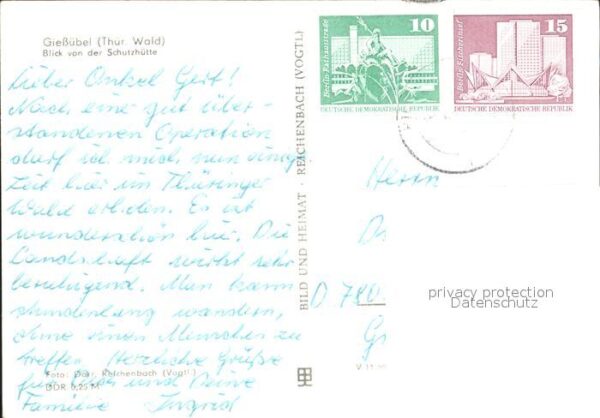 Gießübel (Thür. Wald)
Blick von der Schutzhütte
Lieber Onkel Gert!
Nach eine gut über-
standenen Operation
darf ich mich nun einige
Zeit hier im Thüringer
Wald erholen. Es ist
wunderschön hier. Die
Landschaft wirkt sehr
beruhigend. Man kann
stundenlang wandern,
ohne einen Menschen zu
treffen. Herzliche Grüße
für Dich und Deine
Familie Ingrid
Foto: Darr, Reichenbach (Vogtl.)
DDR 0,25 M
BILD UND HEIMAT · REICHENBACH (VOGTL)
10
Berlin-Rathausstraße
DEUTSCHE DEMOKRATISCHE REPUBLIK
15
Berlin-Fischerinsel
DEUTSCHE DEMOKRATISCHE REPUBLIK
Herrn
D 780
privacy protection
Datenschutz